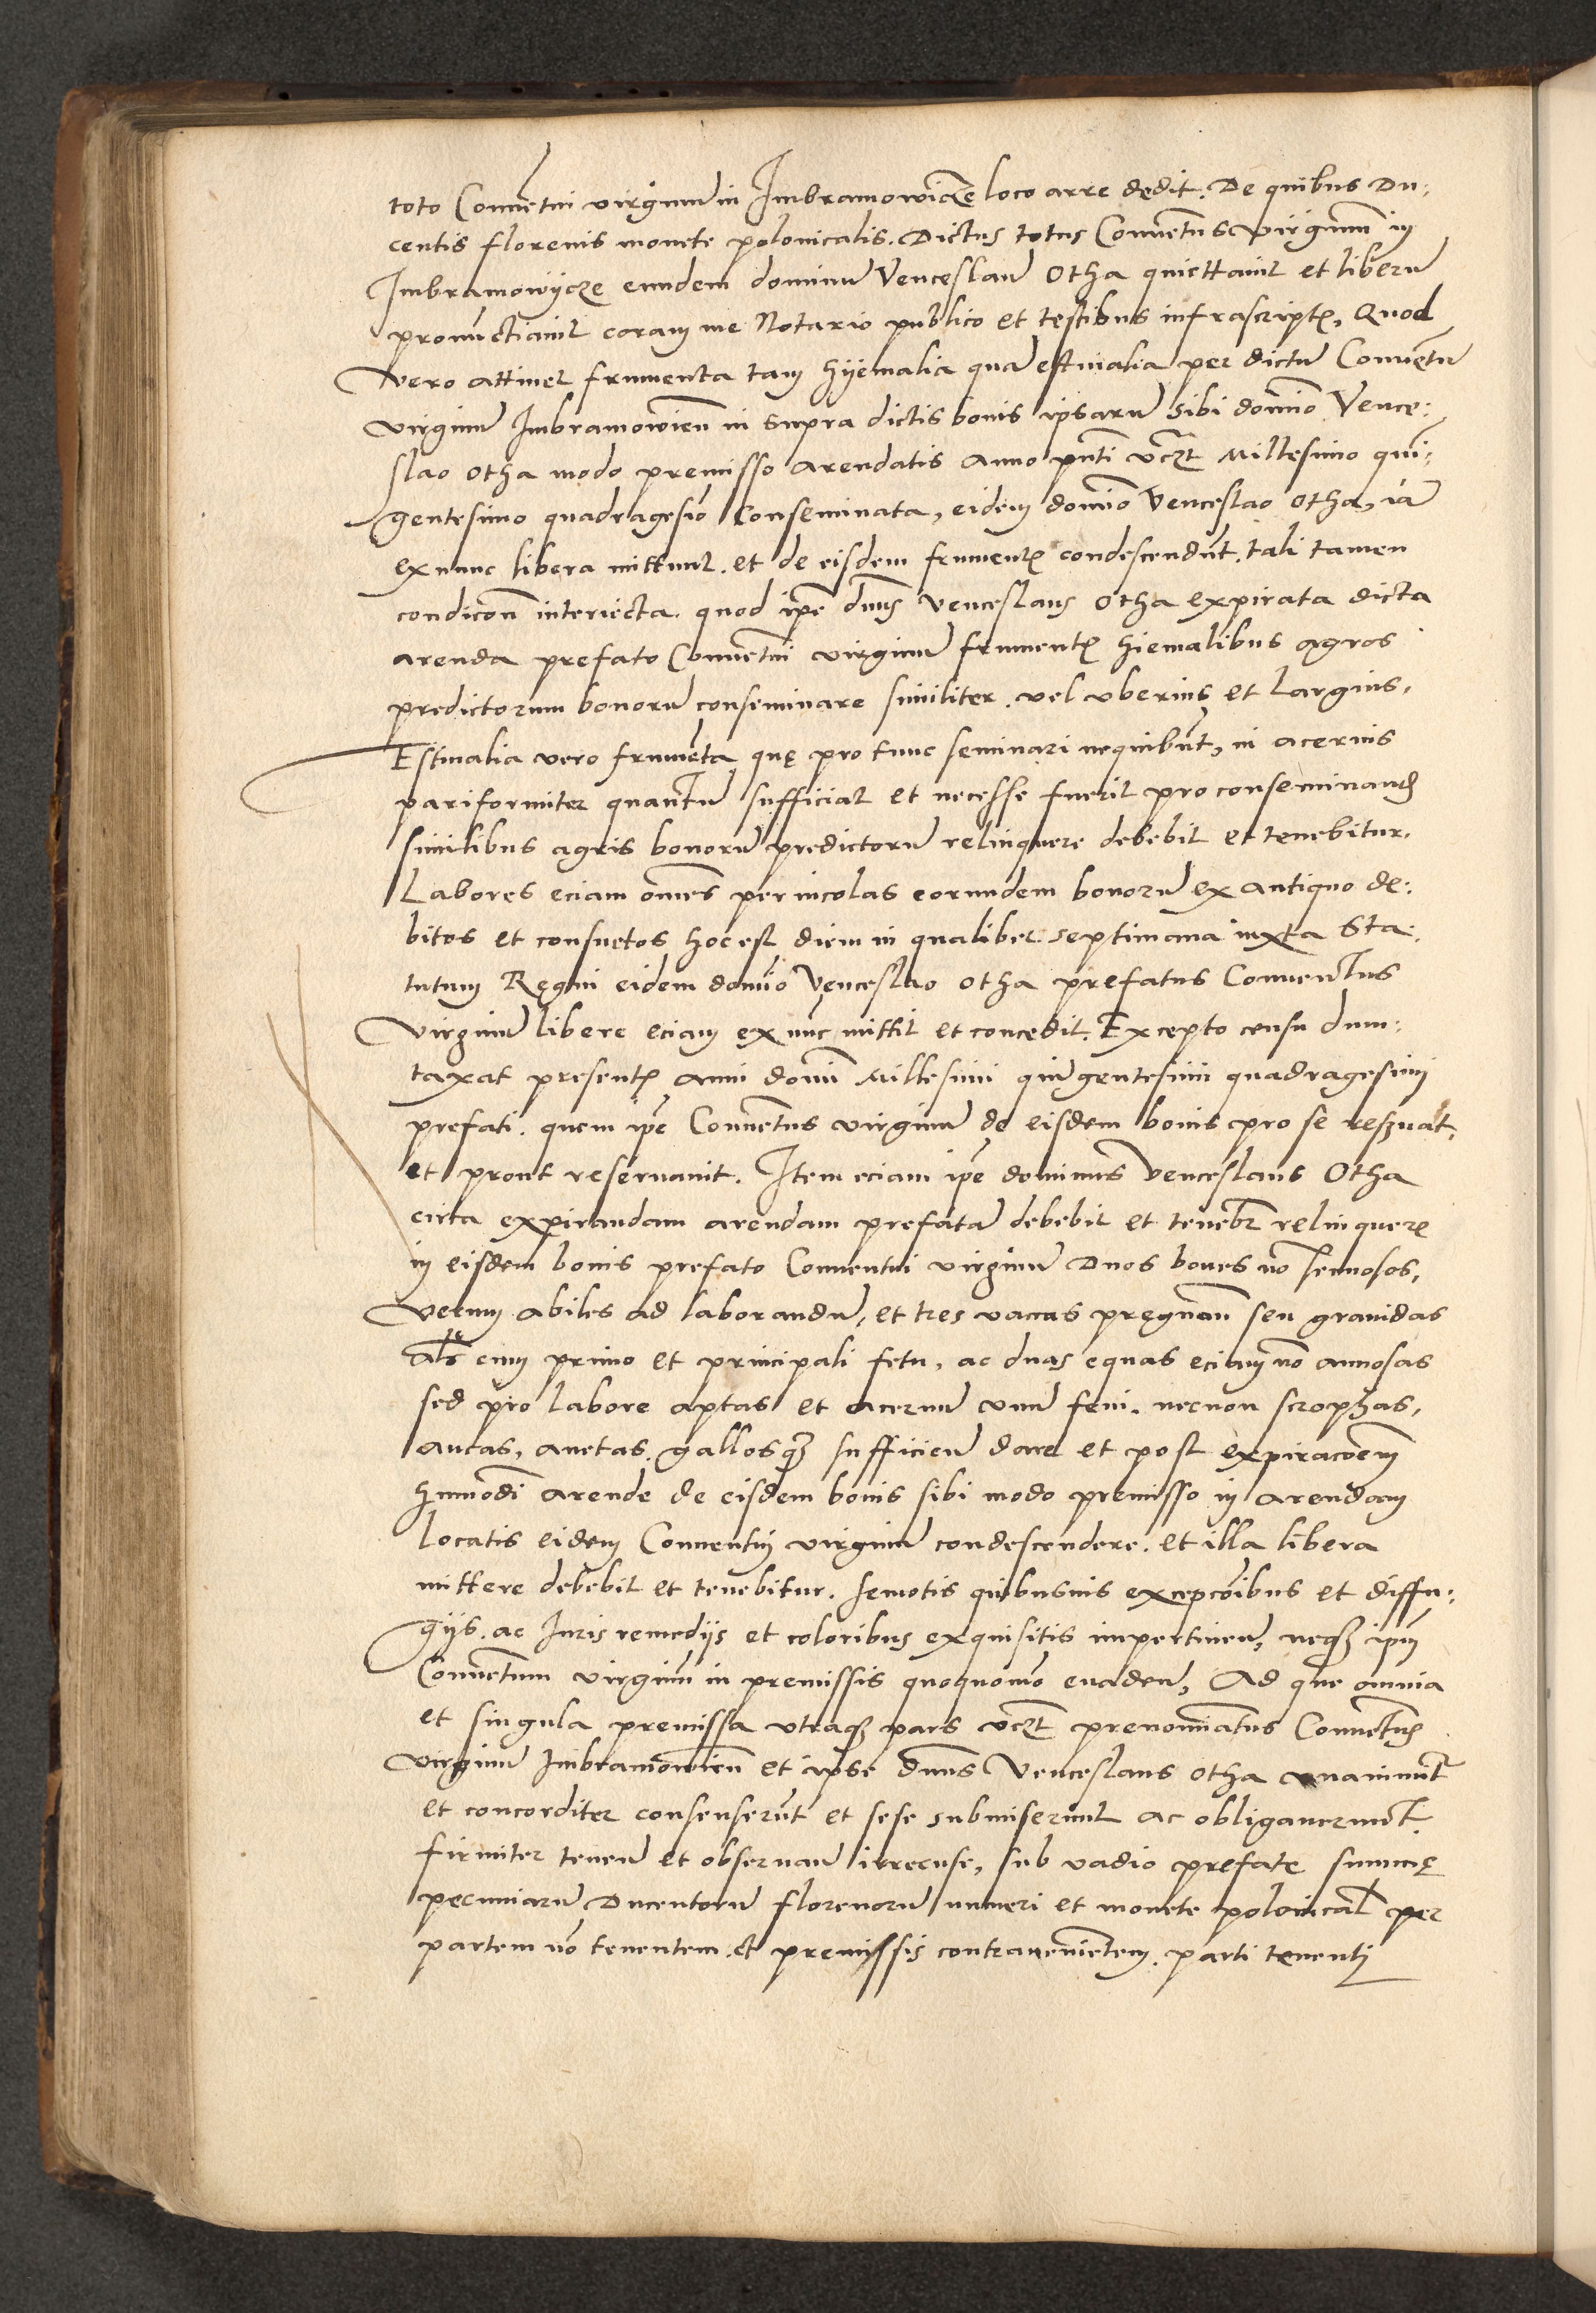 toto Conuẽtui virginũ in Imbramowicze loco arre dedit. De quibus Du:
centis florenis monete polonicalis. Dictus totus Conuẽtus virginum in
Imbramowycze eundem dominũ Venceslaũ Otha quiettauit et liberũ
pronũctiauit coram me Notario publico et testibus infrascriptꝭ, Quod
vero attinet frumenta tam hyemalia quã estiualia per dictũ Conuẽtũ
virginũ Imbramowieñ in supra dictis bonis ipsarũ sibi domĩo Vence:
slao Otha modo premisso arendatis Anno pñti vczt Millesimo quĩ:
gentesimo quadragesĩo Conseminata, eidem domĩo Venceslao Otha, iã
ex nunc libera mittunt. et de eisdem frumentꝭ condescendũt. tali tamen
condicoñ interiecta. quod ip̃e dñus Venceslaus Otha expirata dicta
arenda prefato Conuẽtui virginũ frumentꝭ hiemalibus agros
predictorum bonorũ conseminare similiter. vel vberius et largius.
Estiualia vero frumẽta quę pro tunc seminari nequibũt, in aceruis
pariformiter quantũ sufficiat et necesse fuerit pro conseminand̃
similibus agris bonorũ predictorũ relinquere debebit et tenebitur.
Labores eciam om̃es per incolas eorundem bonorũ ex antiquo de:
bitos et consuetos hoc est diem in qualibet septimana iuxta Sta:
tutum Regni eidem domĩo Venceslao Otha prefatus Conuentus
virginũ libere eciam ex nũc mittit et concedit. Excepto censu dum:
taxat presentꝭ anni domĩ Millesimi quĩgentesimi quadragesimi
prefati. quem ip̃e Conuẽtus virginũ de eisdem bonis pro se reseruat.
et prout reseruauit. Item eciam ip̃e dominus Venceslaus Otha
circa expirandam arendam prefatã debebit et teneb̃r relinquere
in eisdem bonis prefato Conuentui virginũ Duos boues nõ senosos,
verum abiles ad laborandũ, et tres vaccas pręgnañ seu grauidas
al̃s cum primo et principali fetu, ac duas equas eciam nõ annosas
sed pro labore aptas et aceruũ vnũ feni. necnon scrophas,
aucas, anetas. gallosq̃ sufficieñ dare et post expiracõem
hmõdi arende de eisdem bonis sibi modo premisso in arendam
locatis eidem Conuentui virginũ condescendere. et illa libera
mittere debebit et tenebitur. semotis quibusuis excepcõibus et diffu:
gijs. ac Iuris remedijs et coloribus exquisitis impertineñ, neq̃ ip̃m
Conuẽtum virginũ in premissis quoquomõ euadeñ, Ad que omnia
et singula premissa vtraq̃ pars vczt prenomĩatus Conuẽtus
virginũ Imbramowieñ et ipse dñus Venceslaus Otha vnanimit̃
et concorditer consenserũt et sese submiserunt ac obligauerunt.
firmiter teneñ et obseruañ irrecuse, sub vadio prefate summę
pecuniarũ Ducentorũ florenorũ numeri et monete polonicał per
partem nõ tenentem. et premissis contrauenientem. parti tenenti